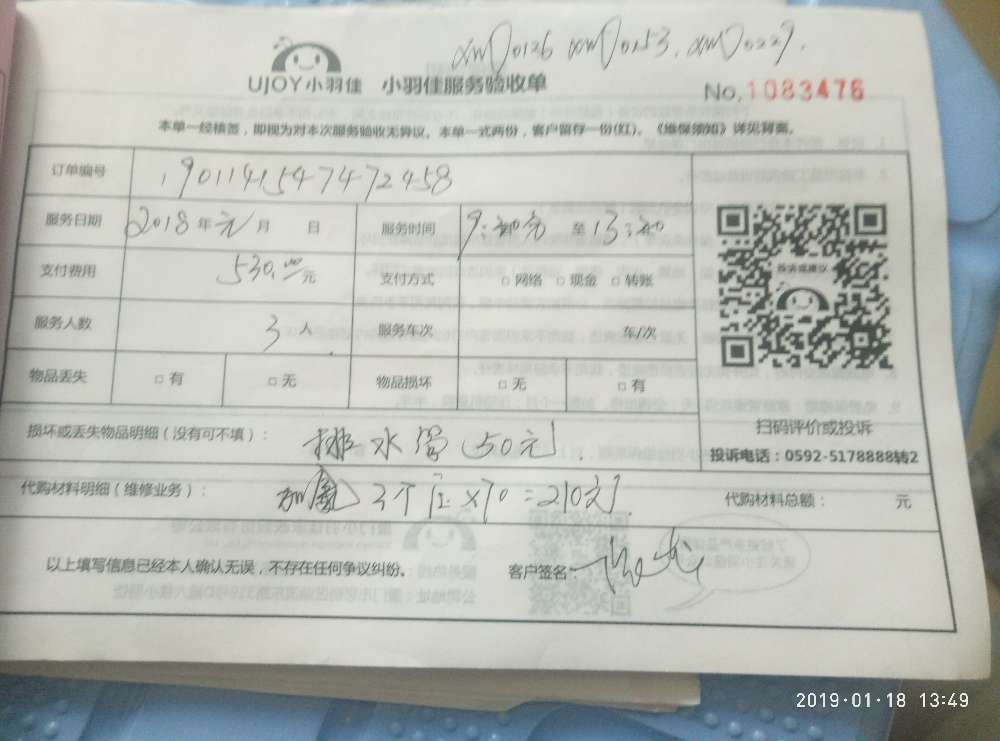 xm00126 xm00253. xm00229.
UJOY小羽佳 小羽佳服务验收单
No.1083476
本单一经核签，即视为对本次服务验收无异议。本单一式两份，客户留存一份(红)。《维保须知》详见背面。
订单编号 190114154747 2458
服务日期 2018年元月 日 服务时间 9:30 至 13:30
支付费用 530.00元 支付方式 □网络 □现金 □转账
投诉或建议
服务人数 3人 服务车次 车/次
物品丢失 □有 □无 物品损坏 □无 □有
扫码评价或投诉
损坏或丢失物品明细（没有可不填）： 排水管（50元）
投诉电话：0592-5178888转2
代购材料明细（维修业务）： 加氟 3个压×70=210元 代购材料总额： 元
以上填写信息已经本人确认无误，不存在任何争议纠纷。 客户签名：
2019·01·18 13:49